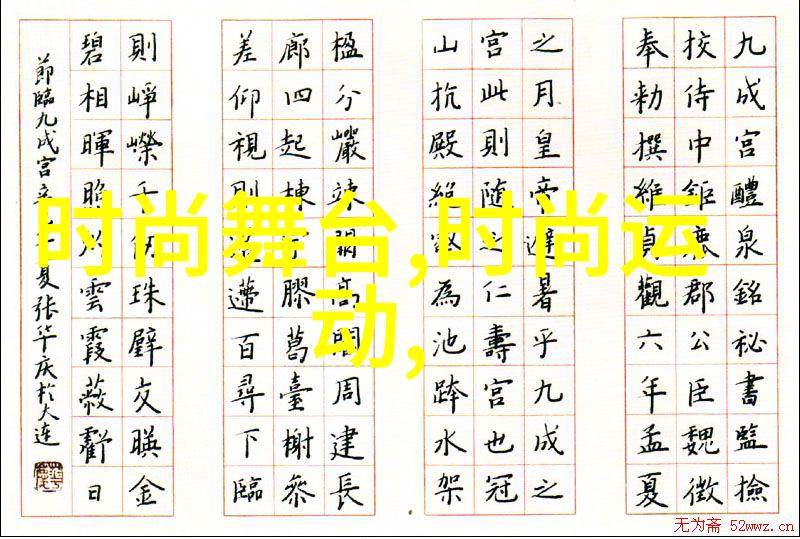 九成宮醴泉銘秘書監撿
挍侍中鉅鹿郡公臣魏徵
奉勅撰維貞觀六年孟夏
之月皇帝避暑乎九成之
宮此則隨之仁壽宮也冠
山抗殿絕壑為池跨水架
楹分巖竦闕高閣周建長
廊四起棟膠葛臺榭參
差仰視則遰百尋下臨
則崢嶸千仞珠璧交暎金
碧相暉照灼雲霞蔽虧日
節臨九成宮夏张华庆於大连
时尚舞台,时尚运
动,
无为斋 52wwz.cn